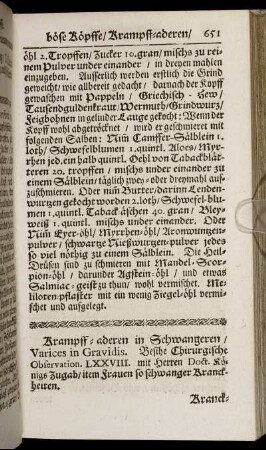 böse Köpffe/ Krampff-aderen/ 651
öhl 2. Tropffen/ Zucker 10. gran/ mischs zu rei-
nem Pulver under einander / in dreyen mahlen
einzugeben. Ausserlich werden erstlich die Grind
geweicht/ wie allbereit gedacht/ darnach der Kopff
gewaschen mit Pappeln / Griechisch-Hew /
Tausendguldenkraut/ Wermuth/ Grindwurz/
Feigbohnen in gelinder Lauge gekocht: Wenn der
Kopff wohl abgetröcknet / wird er geschmieret mit
folgenden Salben: Nim Camffer-Sälblein 1.
loth/ Schwefelblumen 1. quintl. Aloes/ Myr-
rhen jed. ein halb quintl. Oehl von Taback blät-
teren 20. tropffen / mischs under einander zu
einem Sälblein/ täglich zwey- oder dreymahl auf-
zuschmieren. Oder nim Butter/ darinn Lenden-
wurzen gekocht worden 2. loth/ Schwefel-blu-
men 1. quintl. Taback-äschen 40. gran / Bley-
weiß 1. quintl. mischs under einander. Oder
Nim Eyer-öhl/ Myrrhen-öhl/ Aronwurzen-
pulver / schwarze Nießwurzen-pulver jedes
so viel nöthig zu einem Sälblein. Die Heil-
Drüsen sind zu schmieren mit Mandel- Scor-
pion-öhl / darunder Agstein-öhl / und etwas
Salmiac-geist zu thun/ wohl vermischet. Me-
liloten-pflaster mit ein wenig Ziegel-öhl vermi-
schet und aufgelegt.
Krampff-aderen in Schwangeren /
Varices in Gravidis. Besihe Chirurgische
Observation. LXXVIII. mit Herren Doct. Kö-
nigs Zugab/ item Frauen so schwanger Kranck-
heiten.
Kranck-